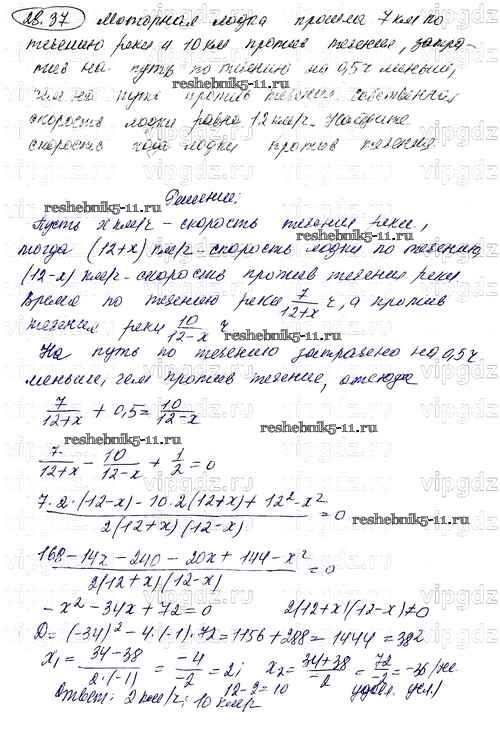 28.37 Моторная лодка прошла 7 км по
течению реки и 10 км против течения, затра-
тив на путь по течению на 0,5 ч меньше,
чем на путь против течения. Собственная
скорость лодки равна 12 км/ч. Найдите
скорость хода лодки против течения.
Решение:
Пусть x км/ч - скорость течения реки,
тогда (12+x) км/ч - скорость лодки по течению,
(12-x) км/ч - скорость против течения реки
Время по течению реки 7/(12+x) ч, а против
течения реки 10/(12-x) ч
На путь по течению затрачено на 0,5 ч
меньше, чем против течение, отсюда
7/(12+x) + 0,5 = 10/(12-x)
7/(12+x) - 10/(12-x) + 1/2 = 0
(7·2·(12-x) - 10·2(12+x) + 12² - x²)/(2(12+x)(12-x)) = 0
(168 - 14x - 240 - 20x + 144 - x²)/(2(12+x)(12-x)) = 0
-x² - 34x + 72 = 0 2(12+x)(12-x) ≠ 0
D = (-34)² - 4·(-1)·72 = 1156 + 288 = 1444 = 38²
x₁ = (34-38)/(2·(-1)) = -4/-2 = 2; x₂ = (34+38)/-2 = 72/-2 = -36 (не
12-2=10 удовл. усл.)
Ответ: 2 км/ч; 10 км/ч
reshebnik5-11.ru
reshebnik5-11.ru
reshebnik5-11.ru
reshebnik5-11.ru
reshebnik5-11.ru
reshebnik5-11.ru
reshebnik5-11.ru
vipgdz